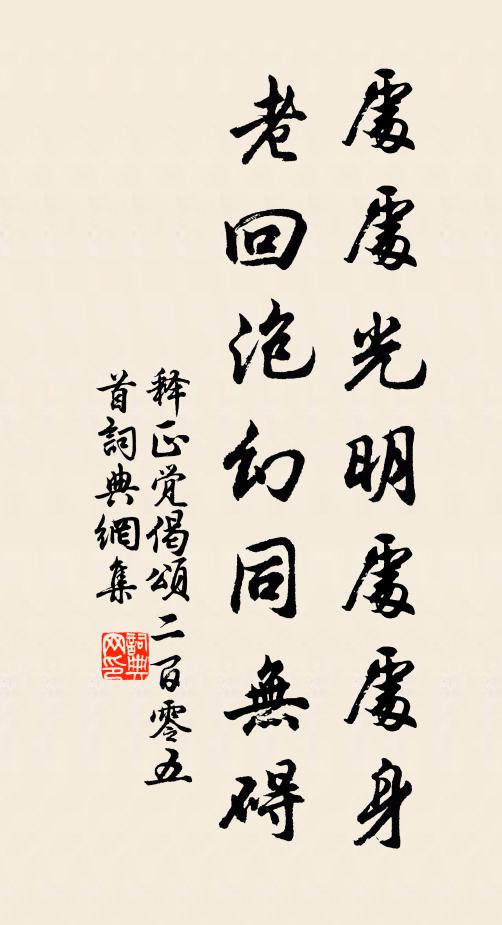 處處光明處處身
老回泡幻同無碍
释正觉偈頌二百零五
首詞典網集
詞典网印